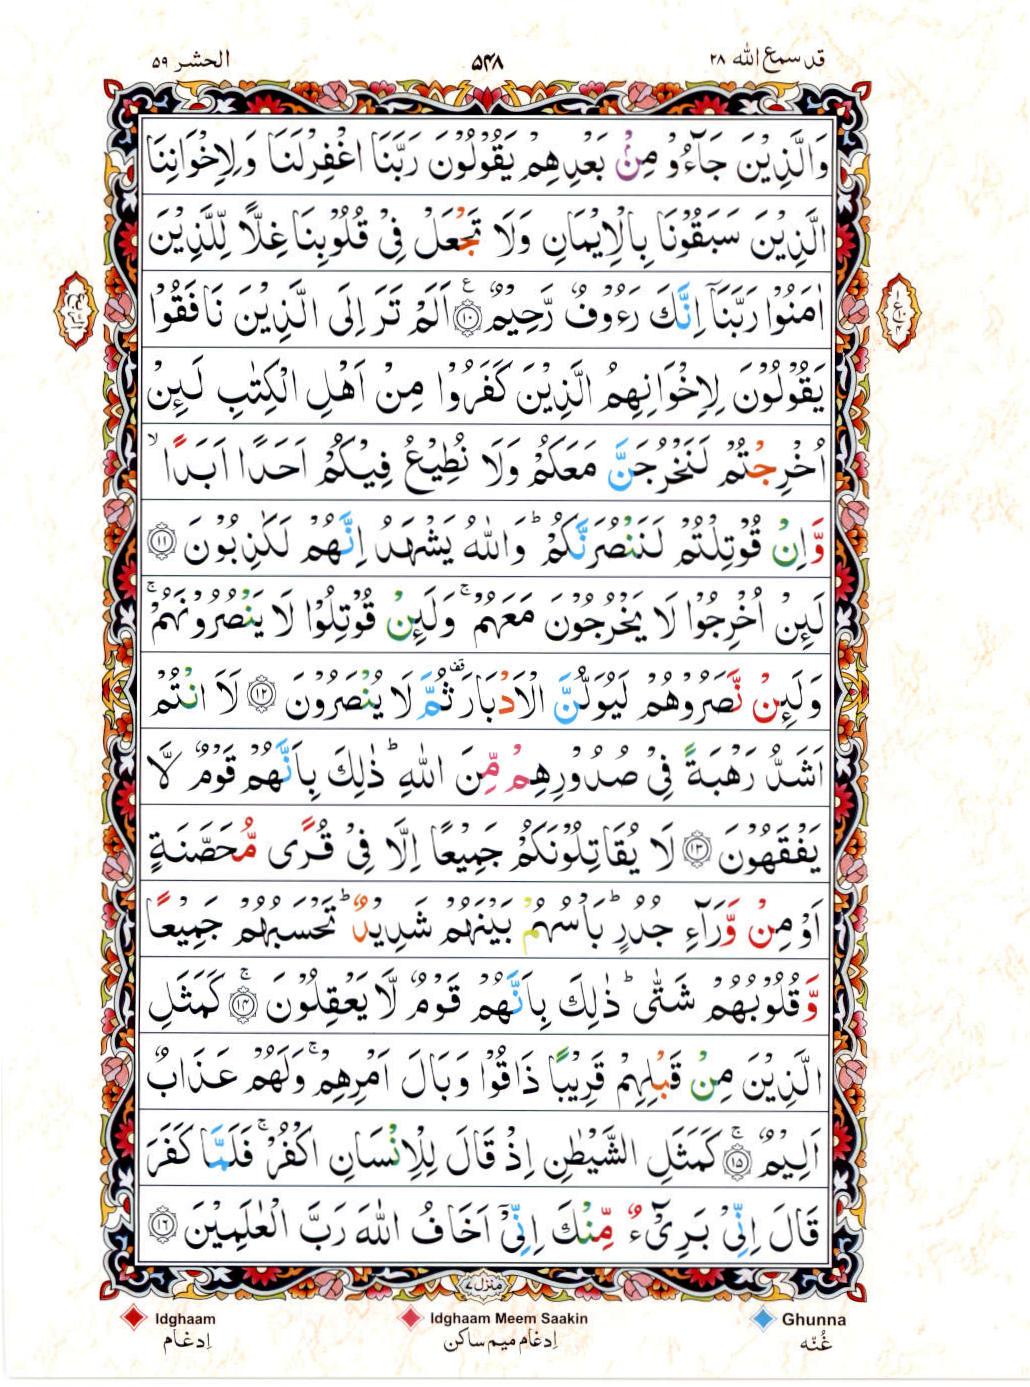 قد سمع الله ۲۸
۵۴۸
الحشر ۵۹
وَالَّذِيْنَ جَآءُوْ مِنْۢ بَعْدِهِمْ يَقُوْلُوْنَ رَبَّنَا اغْفِرْ لَنَا وَلِاِخْوَانِنَا
الَّذِيْنَ سَبَقُوْنَا بِالْاِيْمَانِ وَلَا تَجْعَلْ فِيْ قُلُوْبِنَا غِلًّا لِّلَّذِيْنَ
اٰمَنُوْا رَبَّنَآ اِنَّكَ رَءُوْفٌ رَّحِيْمٌ ۧ ﴿۱۰﴾ اَلَمْ تَرَ اِلَى الَّذِيْنَ نَافَقُوْا
يَقُوْلُوْنَ لِاِخْوَانِهِمُ الَّذِيْنَ كَفَرُوْا مِنْ اَهْلِ الْكِتٰبِ لَئِنْ
اُخْرِجْتُمْ لَنَخْرُجَنَّ مَعَكُمْ وَلَا نُطِيْعُ فِيْكُمْ اَحَدًا اَبَدًا ۙ
وَّاِنْ قُوْتِلْتُمْ لَنَنْصُرَنَّكُمْ ؕ وَاللّٰهُ يَشْهَدُ اِنَّهُمْ لَكٰذِبُوْنَ ﴿۱۱﴾
لَئِنْ اُخْرِجُوْا لَا يَخْرُجُوْنَ مَعَهُمْ ۚ وَلَئِنْ قُوْتِلُوْا لَا يَنْصُرُوْنَهُمْ ۚ
وَلَئِنْ نَّصَرُوْهُمْ لَيُوَلُّنَّ الْاَدْبَارَ ۟ ثُمَّ لَا يُنْصَرُوْنَ ﴿۱۲﴾ لَاَ انْتُمْ
اَشَدُّ رَهْبَةً فِيْ صُدُوْرِهِمْ مِّنَ اللّٰهِ ؕ ذٰلِكَ بِاَنَّهُمْ قَوْمٌ لَّا
يَفْقَهُوْنَ ﴿۱۳﴾ لَا يُقَاتِلُوْنَكُمْ جَمِيْعًا اِلَّا فِيْ قُرًى مُّحَصَّنَةٍ
اَوْ مِنْ وَّرَآءِ جُدُرٍ ؕ بَاْسُهُمْ بَيْنَهُمْ شَدِيْدٌ ؕ تَحْسَبُهُمْ جَمِيْعًا
وَّقُلُوْبُهُمْ شَتّٰى ؕ ذٰلِكَ بِاَنَّهُمْ قَوْمٌ لَّا يَعْقِلُوْنَ ۚ ﴿۱۴﴾ كَمَثَلِ
الَّذِيْنَ مِنْ قَبْلِهِمْ قَرِيْبًا ذَاقُوْا وَبَالَ اَمْرِهِمْ ۚ وَلَهُمْ عَذَابٌ
اَلِيْمٌ ۚ ﴿۱۵﴾ كَمَثَلِ الشَّيْطٰنِ اِذْ قَالَ لِلْاِنْسَانِ اكْفُرْ ۚ فَلَمَّا كَفَرَ
قَالَ اِنِّيْ بَرِيْٓءٌ مِّنْكَ اِنِّيْٓ اَخَافُ اللّٰهَ رَبَّ الْعٰلَمِيْنَ ﴿۱۶﴾
منزل ۷
Idghaam
Idghaam Meem Saakin
Ghunna
اِدغام
اِدغام میم ساکن
غُنّه